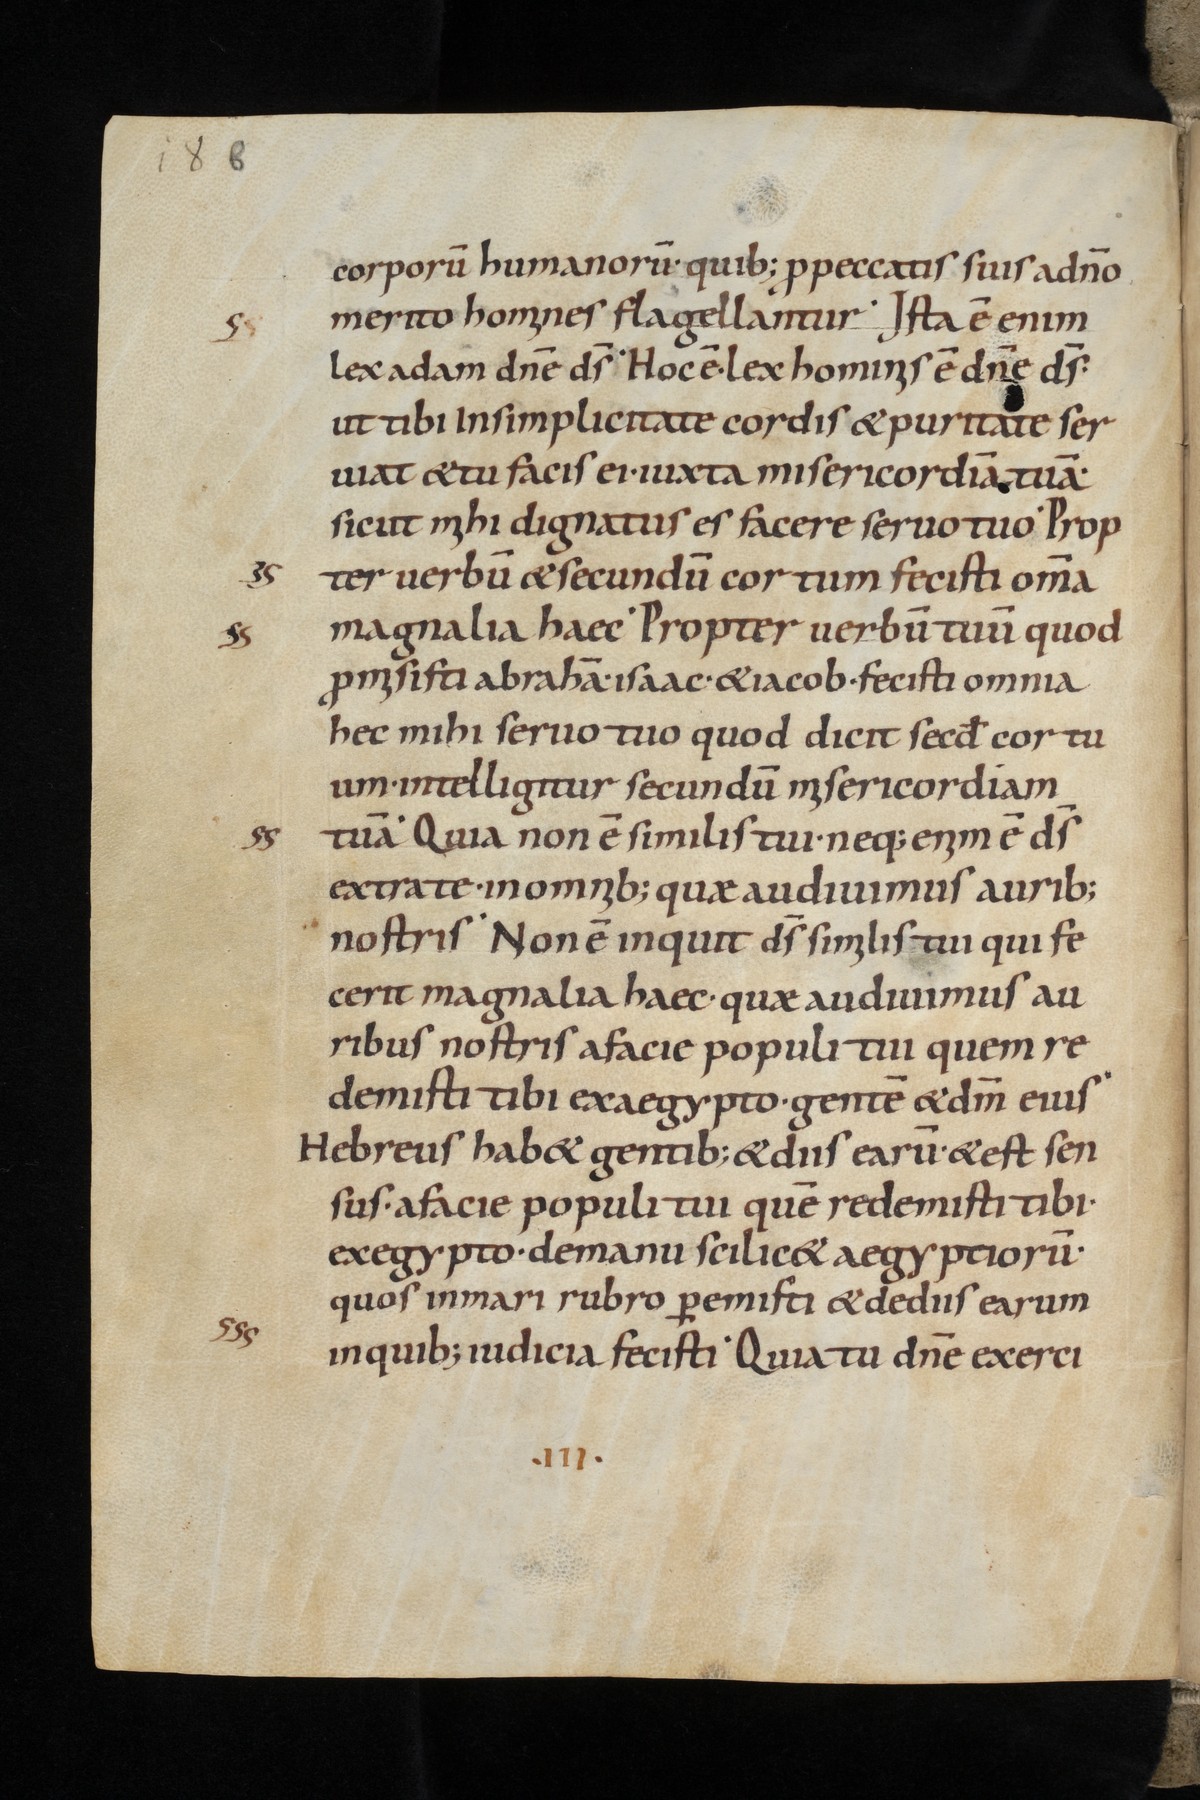 188
corporū humanorū· quib; ꝓpeccatis suis adn̄o
merito homines flagellantur· Ista ē enim
lex adam dn̄e ds̄· Hoc ē· lex hominis ē dn̄e ds̄·
ut tibi Insimplicitate cordis & puritate ser
uiat & tu facis ei· iuxta misericordiā tuā·
sicut mihi dignatus es facere seruo tuo· Prop
ter uerbū & secundū cor tuum fecisti om̄a
magnalia haec· Propter uerbū tuū quod
ꝓmisisti abrahā· isaac· & iacob· fecisti omnia
hec mihi seruo tuo quod dicit secd̄ cor tu
um· intelligitur secundū misericordiam
tuā· Quia non ē similis tui· neq; enim ē ds̄
extra te· in omnib; quæ audiuimus aurib;
nostris· Non ē inquit ds̄ similis tui qui fe
cerit magnalia haec· quæ audiuimus au
ribus nostris afacie populi tui quem re
demisti tibi exaegypto· gentē & dm̄ eius·
Hebreus hab& gentib; & diis earū· & est sen
sus· afacie populi tui quē redemisti tibi·
exegypto· demanu scilic& aegyptiorū·
quos inmari rubro ꝑemisti & dediis earum
inquib; iudicia fecisti· Quia tu dn̄e exerci
·III·